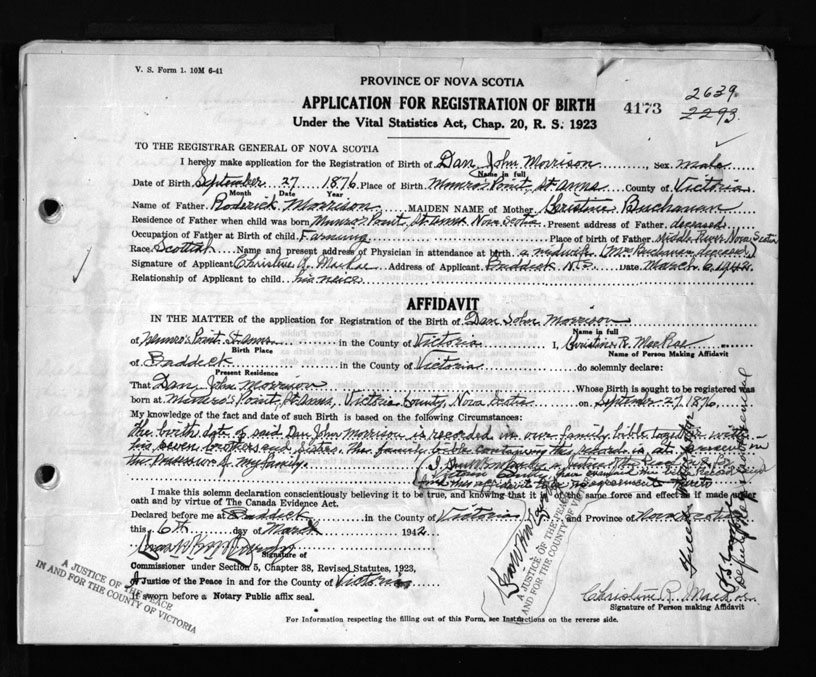 V. S. Form 1. 10M 6-41
PROVINCE OF NOVA SCOTIA
APPLICATION FOR REGISTRATION OF BIRTH
Under the Vital Statistics Act, Chap. 20, R. S. 1923
4173
2639
2293
TO THE REGISTRAR GENERAL OF NOVA SCOTIA
I hereby make application for the Registration of Birth of Dan John Morrison Sex Male
Name in full
Date of Birth September 27 1876 Place of Birth Munro's Point, St Anns County of Victoria
Month Date Year
Name of Father Roderick Morrison MAIDEN NAME of Mother Christine Buchanan
Residence of Father when child was born Munro's Point, St Anns Nova Scotia Present address of Father deceased
Occupation of Father at Birth of child Farming Place of birth of Father Middle River Nova Scotia
Race Scottish Name and present address of Physician in attendance at birth a midwife (Mrs Buchanan deceased)
Signature of Applicant Christine R. MacRae Address of Applicant Baddeck N.S. Date March 6 1942
Relationship of Applicant to child his neice
AFFIDAVIT
IN THE MATTER of the application for Registration of the Birth of Dan John Morrison
Name in full
of Munro's Point St Anns in the County of Victoria I, Christine R. MacRae
Birth Place Name of Person Making Affidavit
of Baddeck in the County of Victoria do solemnly declare:
Present Residence
That Dan John Morrison Whose Birth is sought to be registered was
born at Munro's Point, St Anns, Victoria County, Nova Scotia on September 27, 1876,
My knowledge of the fact and date of such Birth is based on the following Circumstances:
the birth date of said Dan John Morrison is recorded in our family bible together with
his seven brothers and sisters. The family bible containing this record is at present in
the possession of my family.
I a Justice of the Peace in and for
Victoria County have examined the Bible Record and
find this affidavit to be in agreement thereto
I make this solemn declaration conscientiously believing it to be true, and knowing that it is of the same force and effect as if made under
oath and by virtue of The Canada Evidence Act.
Declared before me at Baddeck in the County of Victoria and Province of Nova Scotia
this 6th day of March 1942
Signature of
Commissioner under Section 5, Chapter 38, Revised Statutes, 1923,
A Justice of the Peace in and for the County of Victoria
If sworn before a Notary Public affix seal.
A JUSTICE OF THE PEACE
IN AND FOR THE COUNTY OF VICTORIA
A JUSTICE OF THE PEACE
IN AND FOR THE COUNTY OF VICTORIA
Christine R. MacRae
Signature of Person making Affidavit
For Information respecting the filling out of this Form, see Instructions on the reverse side.